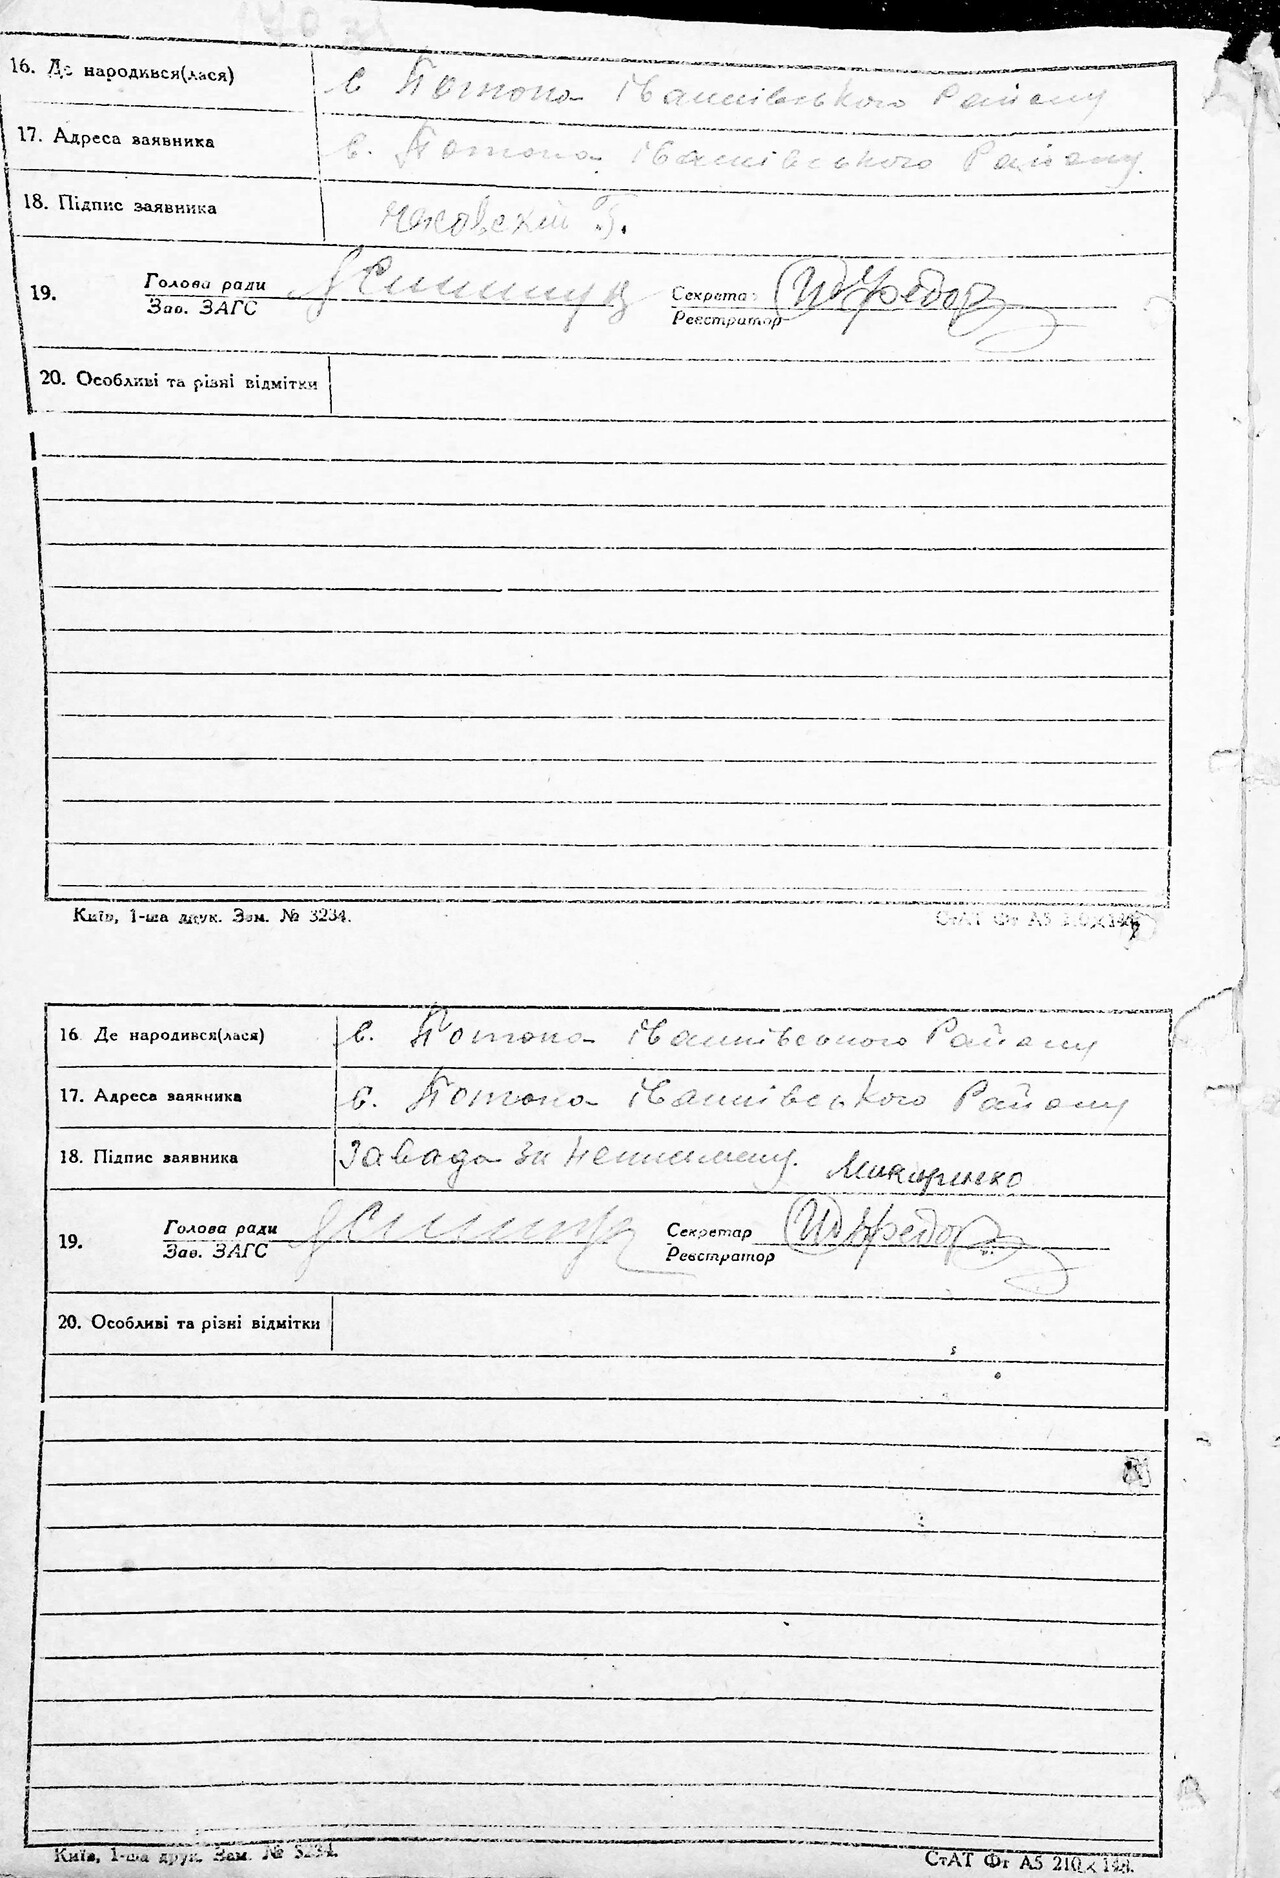 16. Де народився(лася) с. Потоки Іванківського Району
17. Адреса заявника с. Потоки Іванківського Району.
18. Підпис заявника
19. Голова ради Секретар
Зав. ЗАГС Реєстратор
20. Особливі та різні відмітки
Київ, 1-ша друк. Зам. № 3234. СтАТ Фт А5 210×148.
16. Де народився(лася) с. Потоки Іванківського Району
17. Адреса заявника с. Потоки Іванківського Району
18. Підпис заявника Завада за неписьмену.
19. Голова ради Секретар
Зав. ЗАГС Реєстратор
20. Особливі та різні відмітки
Київ, 1-ша друк. Зам. № 3234. СтАТ Фт А5 210×148.